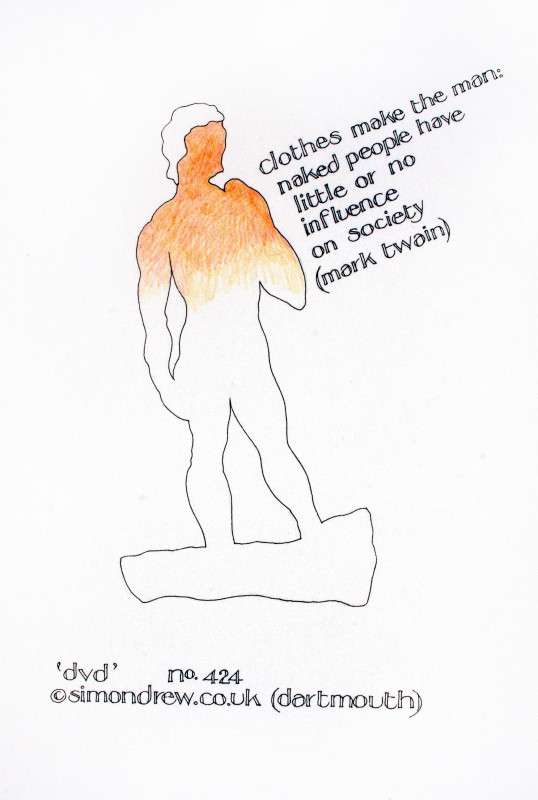 clothes make the man:
naked people have
little or no
influence
on society
(mark twain)
'dvd' no. 424
©simondrew.co.uk (dartmouth)